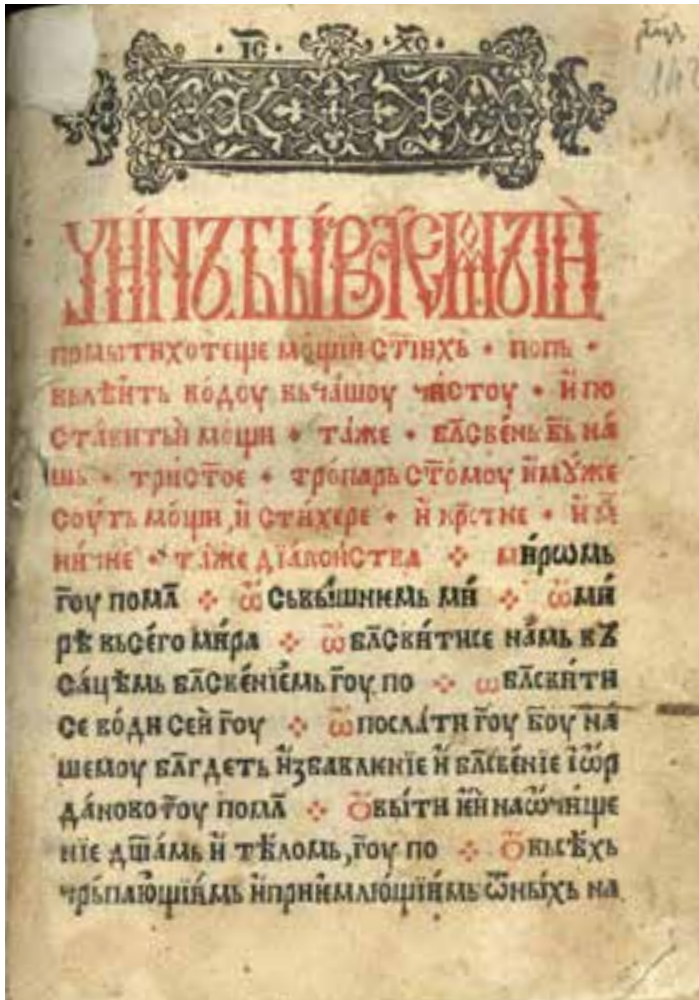 І҃С · Х҃С
ЧИ́НЪ БЫВА́ЕМЫИ
помыти хотеще мощи ст҃їихь · попь ·
вьлѣ́ить во́доу вьча́шоу чи́стоу · и҆ по
ста́вить и҆ мощи · та́же · бл҃све́нь б҃ь на́
шь · трист҃ое · тропа́рь ст҃о́моу и҆му́же
соу́ть мо́щи, и҆ сти́хере · и҆ кр҃стне · и҆
та́же дїа́коньства ⁘ ми́рѡмь
го҃у пом҃л ⁘ ѡ҃ сьвы́шниемь ми́ ⁘ ѡ҃ ми́
рѣ вьсе́го ми́ра ⁘ ѡ҃ бл҃сви́тисе на́мь
бл҃све́нїемь го҃у по ⁘ ѡ҃ бл҃сви́ти
се во́ди се́й го҃у ⁘ ѡ҃ посла́ти го҃у бо҃у на́
шемоу бл҃гдеть и҆збавле́нїе и҆ бл҃све́нїе і҆ѡ҃р
да́ново го҃у пом҃л ⁘ Ѻ҃ бы́ти и҆е́й на ѡ҆чи́ще
нїе дш҃а́мь и҆ тѣ́ломь, го҃у по ⁘ Ѻ҃ вьсѣ́хь
чрь́плю́щїимь и҆ прие́млю́щїимь ѿ ны́хь на